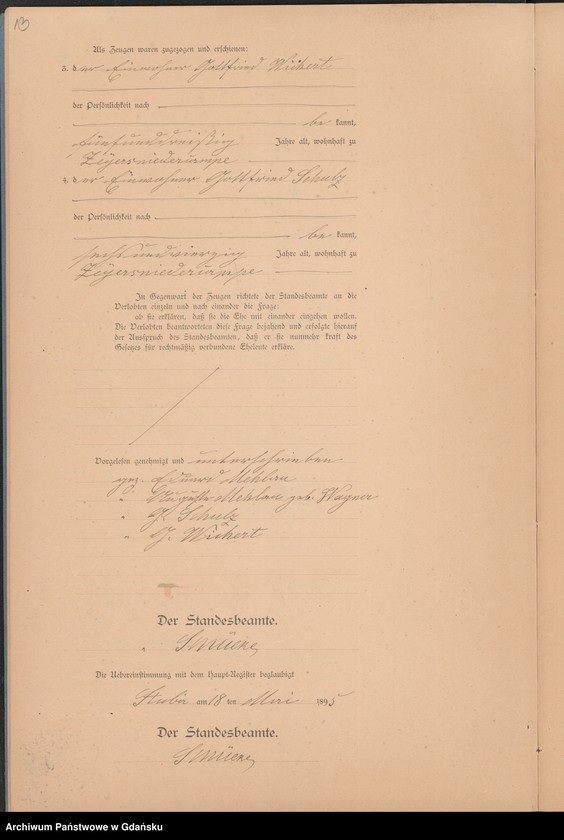 13
Als Zeugen waren zugezogen und erschienen:
3. der Einwohner Gottfried Wichert
der Persönlichkeit nach
be kannt,
fünfunddreißig Jahre alt, wohnhaft zu
Zeyersniederkampe
4. der Einwohner Gottfried Schulz
der Persönlichkeit nach
be kannt,
sechsundvierzig Jahre alt, wohnhaft zu
Zeyersniederkampe
In Gegenwart der Zeugen richtete der Standesbeamte an die
Verlobten einzeln und nach einander die Frage:
ob sie erklären, daß sie die Ehe mit einander eingehen wollen.
Die Verlobten beantworteten diese Frage bejahend und erfolgte hierauf
der Ausspruch des Standesbeamten, daß er sie nunmehr kraft des
Gesetzes für rechtmäßig verbundene Eheleute erkläre.
Vorgelesen genehmigt und unterschrieben
gez. Eduard Mehlau
" Auguste Mehlau geb. Wagner
" G. Schulz
" G. Wichert
Der Standesbeamte.
Die Uebereinstimmung mit dem Haupt-Register beglaubigt
Stuba am 18 ten Mai 1895
Der Standesbeamte.
Archiwum Państwowe w Gdańsku